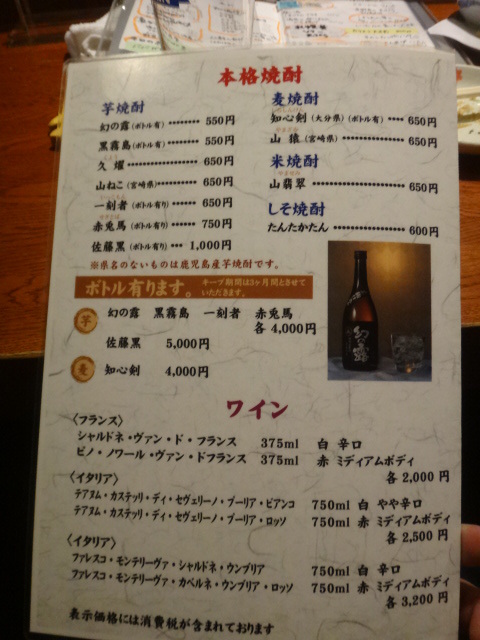 本格焼酎
芋焼酎
幻の露(ボトル有) 550円
黒霧島(ボトル有) 550円
久耀 650円
山ねこ(宮崎県) 650円
一刻者(ボトル有り) 650円
赤兎馬(ボトル有り) 750円
佐藤黒(ボトル有り) 1,000円
※県名のないものは鹿児島産芋焼酎です。
麦焼酎
知心剣(大分県)(ボトル有) 650円
山猿(宮崎県) 650円
米焼酎
山翡翠 650円
しそ焼酎
たんたかたん 600円
ボトル有ります。 キープ期間は3ヶ月間とさせて
いただきます。
芋 幻の露 黒霧島 一刻者 赤兎馬
各 4,000円
佐藤黒 5,000円
麦 知心剣 4,000円
幻の露
ワイン
〈フランス〉
シャルドネ・ヴァン・ド・フランス 375ml 白 辛口
ピノ・ノワール・ヴァン・ドフランス 375ml 赤 ミディアムボディ
各 2,000円
〈イタリア〉
テアヌム・カステッリ・ディ・セヴェリーノ・プーリア・ビアンコ 750ml 白 やや辛口
テアヌム・カステッリ・ディ・セヴェリーノ・プーリア・ロッソ 750ml 赤 ミディアムボディ
各 2,500円
〈イタリア〉
ファレスコ・モンテリーヴァ・シャルドネ・ウンブリア 750ml 白 辛口
ファレスコ・モンテリーヴァ・カベルネ・ウンブリア・ロッソ 750ml 赤 ミディアムボディ
各 3,200円
表示価格には消費税が含まれております